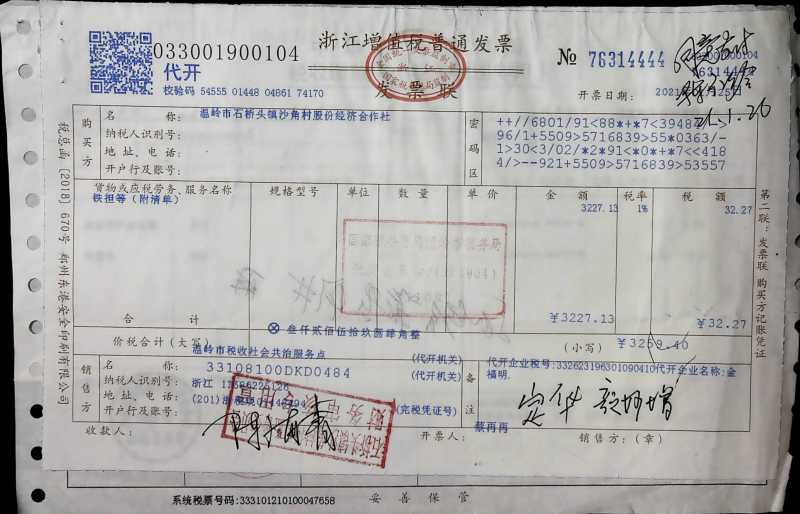 033001900104
浙江增值税普通发票
№ 76314444
代开
发票联
校验码 54555 01448 04861 74170
开票日期:
21.1.26
购买方
名 称: 温岭市石桥头镇沙角村股份经济合作社
纳税人识别号:
地址、电话:
开户行及账号:
密码区
++//6801/91<88*+*7<39484
96/1+5509>5716839>55*0363/-
1>30<3/02/*2*91<*0*+*7<<418
4/>--921+5509>5716839>53557
货物或应税劳务、服务名称 规格型号 单位 数量 单价 金额 税率 税额
铁担等(附清单) 3227.13 1% 32.27
合计 ¥3227.13 ¥32.27
价税合计(大写) ⊗ 叁仟贰佰伍拾玖圆肆角整 (小写) ¥3259.40
销售方
名 称: 温岭市税收社会共治服务点 (代开机关)
纳税人识别号: 33108100DKD0484 (代开机关)
地址、电话: 浙江
开户行及账号: (完税凭证号)
备注
代开企业税号:332623196301090410代开企业名称:金
福明.
收款人: 开票人: 蔡再再 销售方:(章)
税总函〔2018〕670号
第二联:发票联 购买方记账凭证
系统税票号码:333101210100047658 妥善保管